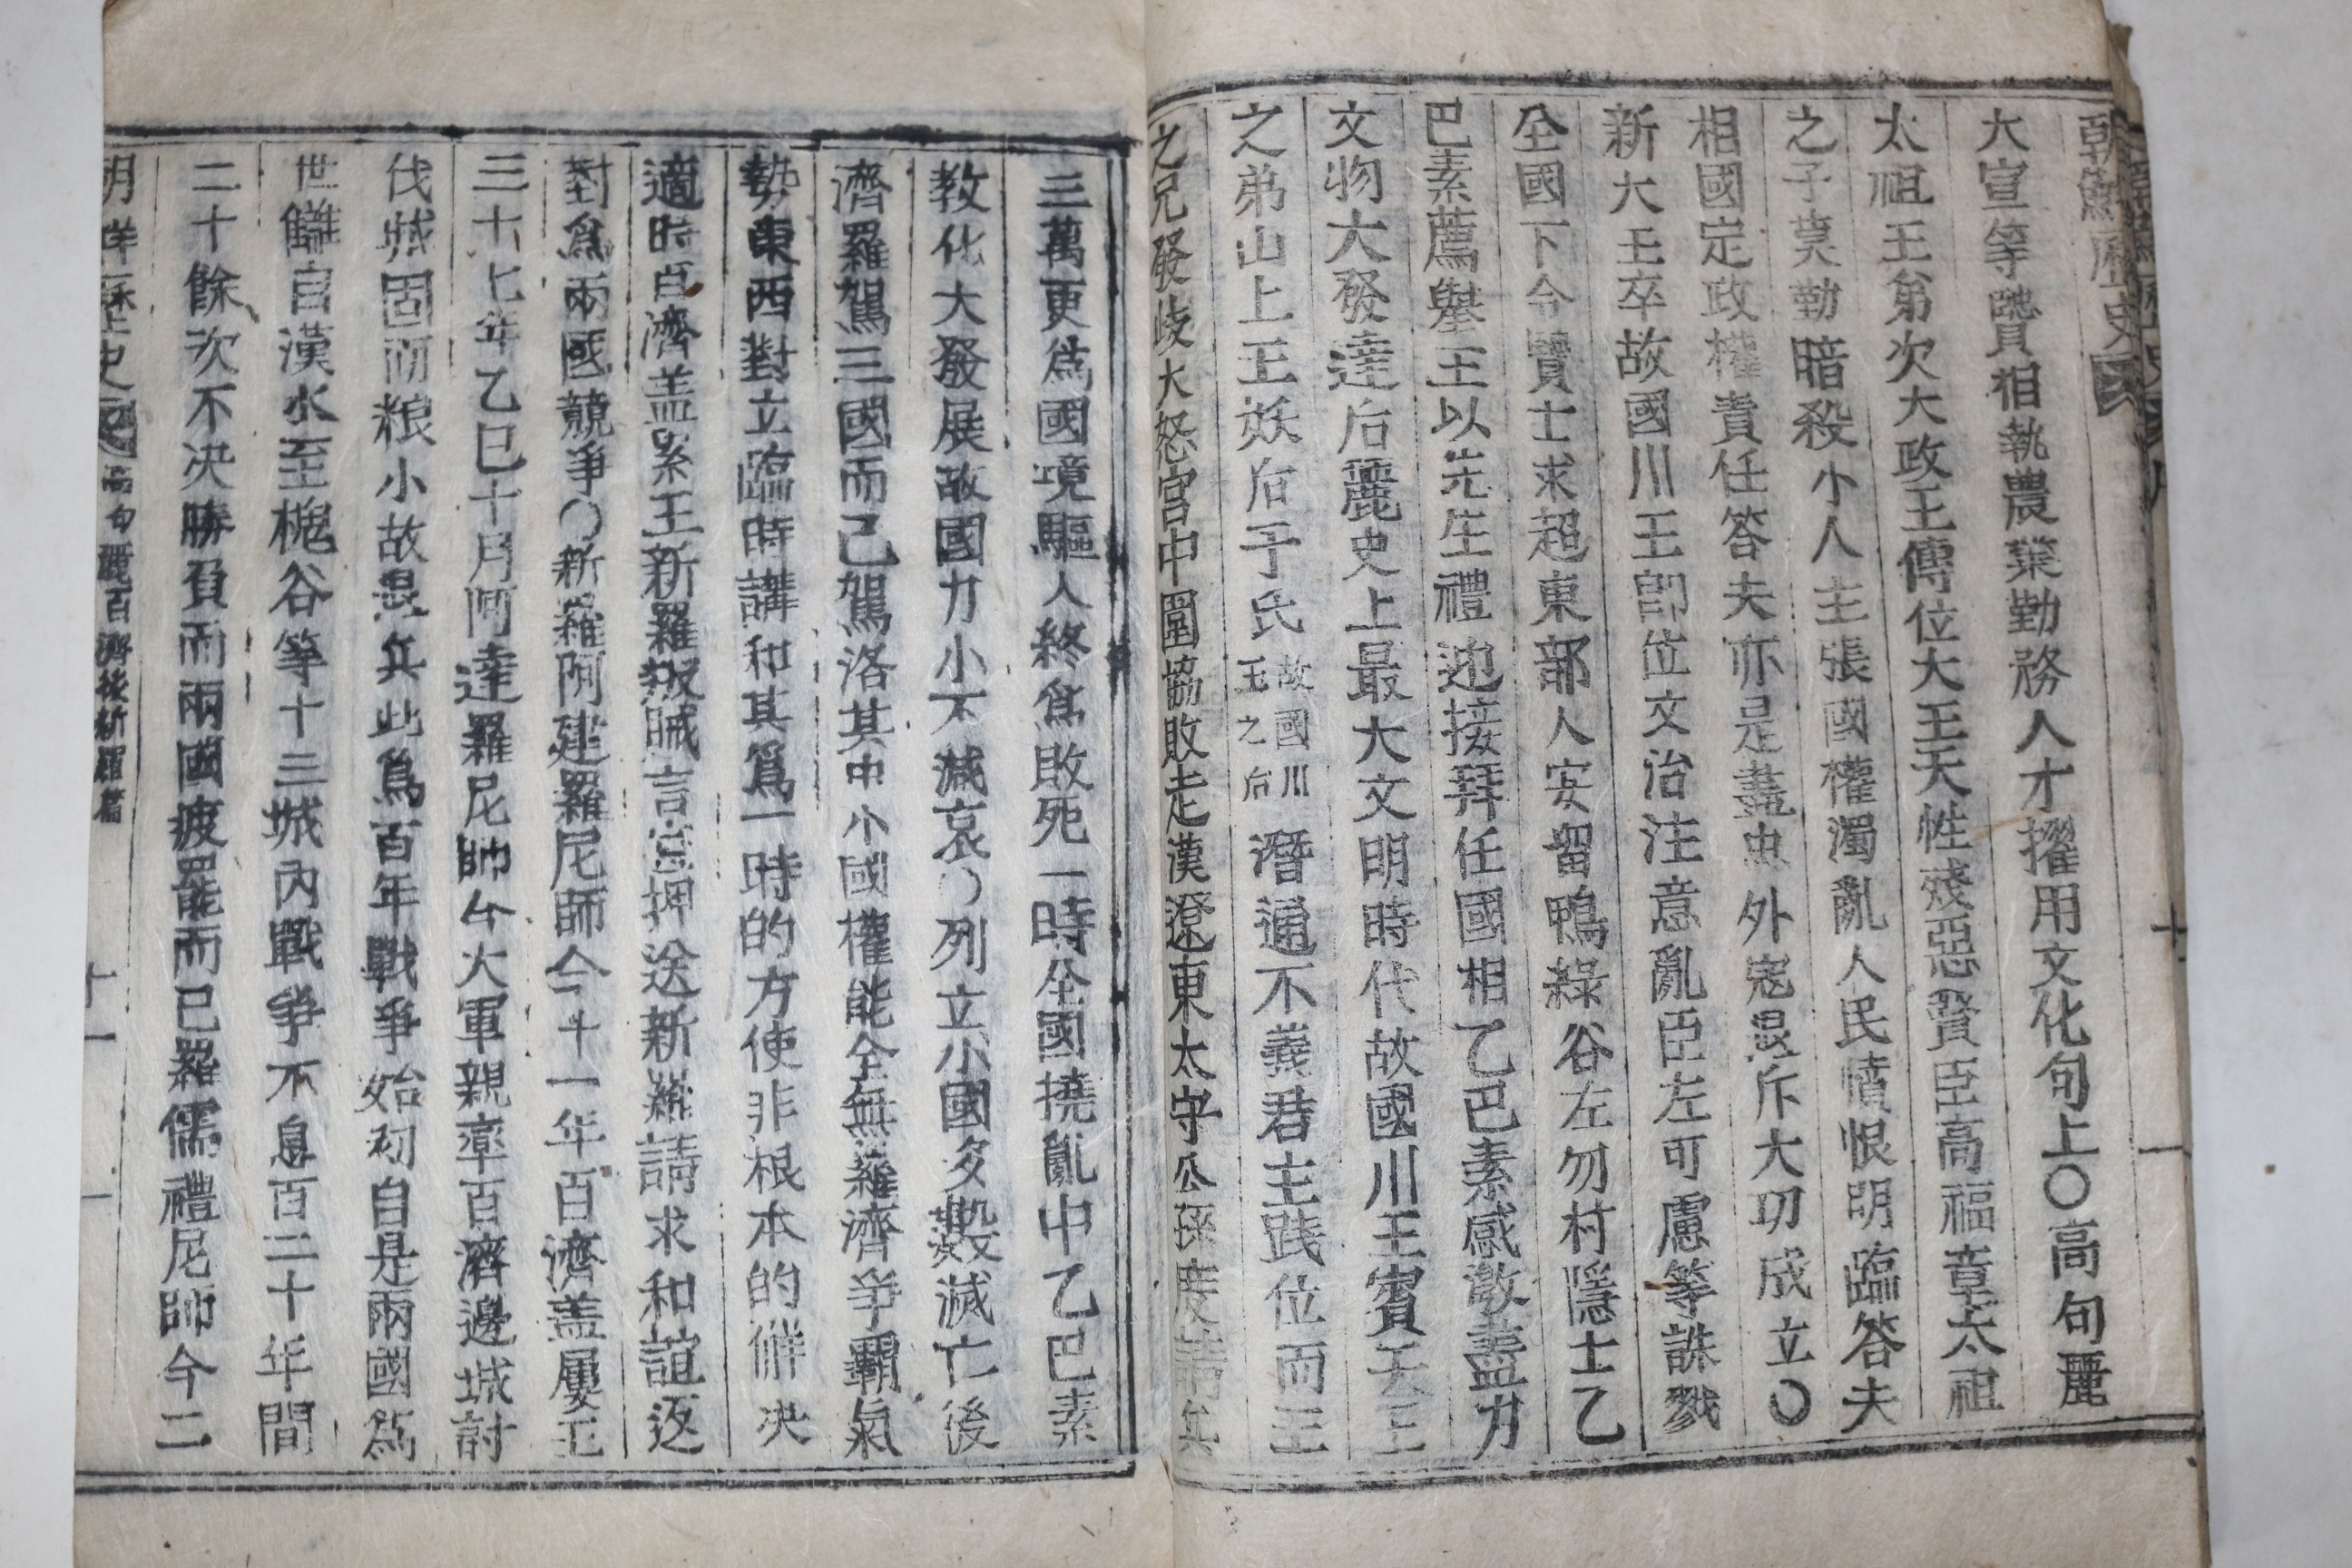 朝鮮歷史
大宣等號買相執農業勤務人才擢用文化句上〇高句麗
太祖王弟次大政王傳位大王天性殘惡賢臣高福章太祖
之子莫勤暗殺小人主張國權濁亂人民憤恨明臨答夫
相國定政權責任答夫亦是盡忠外寇混斥大功成立〇
新大王卒故國川王卽位文治注意亂臣左可慮等誅戮
全國下令賢士求超東部人安留鴨綠谷左勿村隱士乙
巴素薦擧王以先生禮迎接拜任國相乙巴素感激盡力
文物大發達后麗史上最大文明時代故國川王賓天王
之弟山上王妖后于氏故國川王之后潛通不義君主踐位而王
之兄發岐大怒宮中圍協敗走漢遼東太守公孫度請兵
三萬更爲國境驅人終爲敗死一時全國撓亂中乙巴素
敎化大發展故國力小不減衰〇列立小國多數滅亡後
濟羅駕三國而己駕洛其中小國權能全無羅濟爭霸氣
勢東西對立臨時講和其爲一時的方使非根本的觧决
適時百濟盖累王新羅叛賊言㝎押送新羅請求和誼返
對爲兩國競爭〇新羅阿建羅尼師今十一年百濟盖屢王
三十七年乙巳十月阿達羅尼師今大軍親率百濟邊城討
伐城固而粮小故退兵此爲百年戰爭始初自是兩國爲
世讎自漢水至槐谷等十三城內戰爭不息百二十年間
二十餘次不决勝負而兩國疲罷而已羅儒禮尼師今二
歷史 高句麗百濟後新羅篇 十一